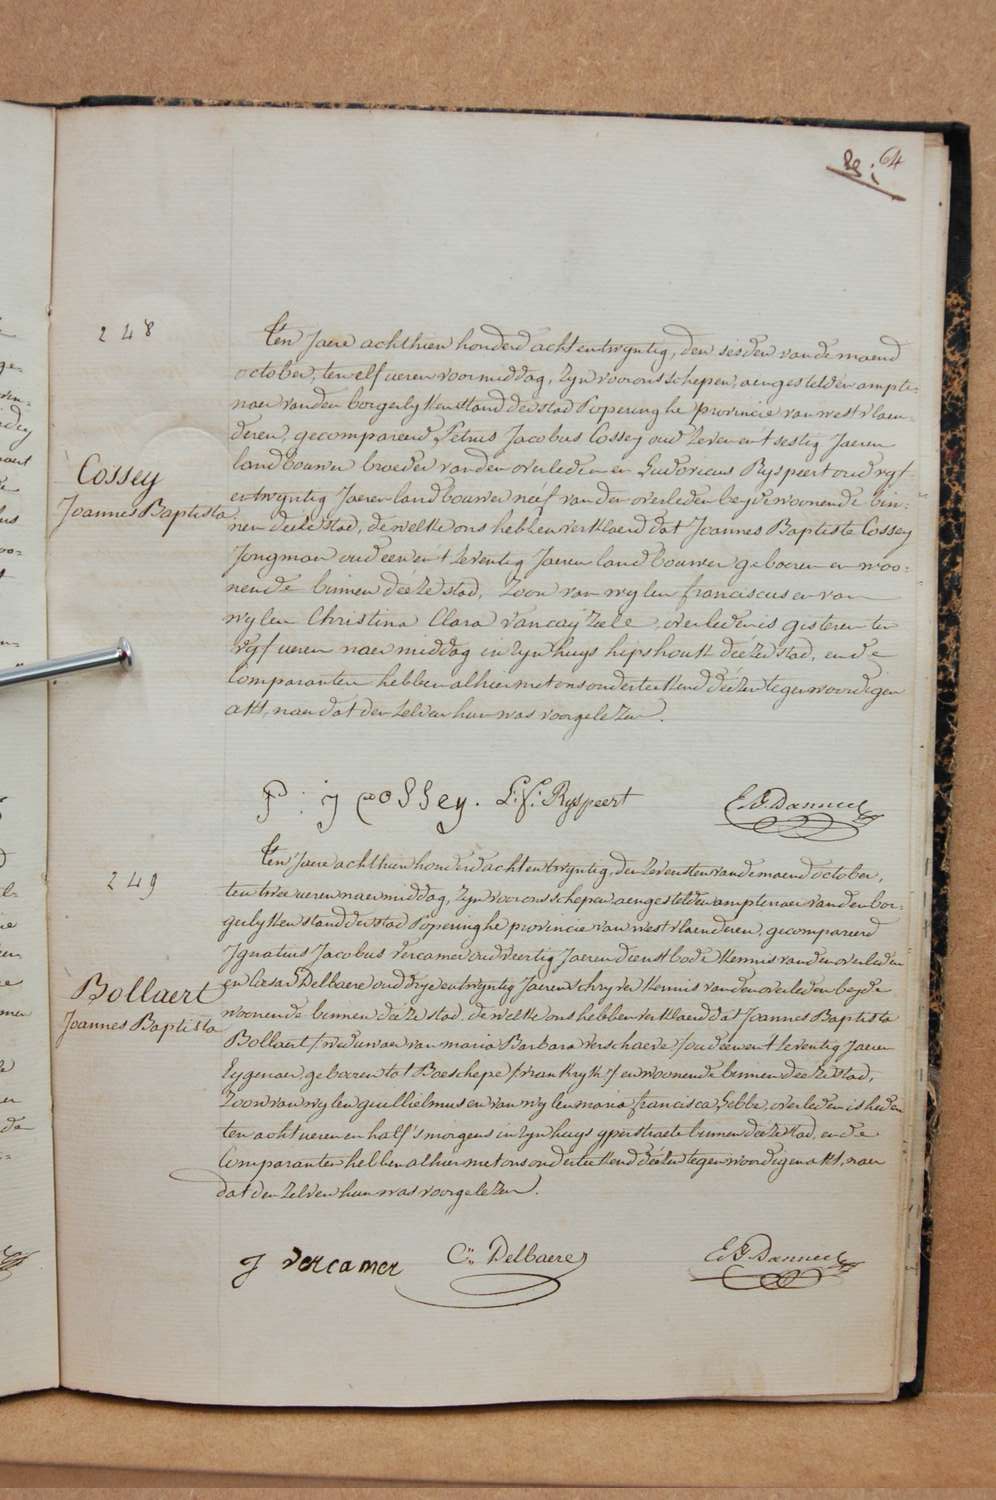 64
248
Cossey
Joannes Baptista
Ten Jaere achthien honderd acht entwyntig, den sesden van de maend
october, ten elf ueren voormiddag, Zyn voor ons schepen, aengestelden ampte-
naer van den borgerlyken stand der stad Poperinghe provincie van westvlaen-
deren, gecompareerd Petrus Jacobus Cossey oud Zeven en't sestig Jaeren
landbouwer broeder van den overleden en Ludovicus Ryspeert oud vyf
entwyntig Jaeren landbouwer neef van den overleden beyde woonende bin-
nen deeze stad, de welke ons hebben verklaerd dat Joannes Baptiste Cossey
Jongman oud een en't zeventig Jaeren landbouwer geboren en woo-
nende binnen deeze stad, Zoon van wylen franciscus en van
wylen Christina Clara vancayzeele, overleden is gisteren ten
vyf ueren naermiddag in zyn huys hipshoutk deezer stad, en de
Comparanten hebben alhier met ons onderteekend deezen tegenwoordigen
akt, naer dat den zelven hun was voorgelezen.
P: J Cossey. L: f: Ryspeert
249
Bollaert
Joannes Baptista
Ten Jaere achthien honderd acht entwyntig, den zevensten van de maend october,
ten twee ueren naermiddag, Zyn voor ons schepen, aengestelden amptenaer van den bor-
gerlyken stand der stad Poperinghe provincie van westvlaenderen, gecompareerd
Ignatius Jacobus Vercamer oud veertig Jaeren dienstbode kennis van den overleden
en Cæsar Delbaere oud dry entwyntig Jaeren Schryver kennis van den overleden beyde
woonende binnen deeze stad, de welke ons hebben verklaerd dat Joannes Baptista
Bollaert /weduwaer van maria Barbara Verschaeve/ oud een en't zeventig Jaeren
Eygenaer, geboren tot Boeschepe /vrankryk/ en woonende binnen deeze stad,
Zoon van wylen guillielmus en van wylen maria francisca Lebbe, overleden is heden
ten acht ueren en half 's morgens in zyn huys yperstraete binnen deeze stad, en de
Comparanten hebben alhier met ons onderteekend deezen tegenwoordigen akt, naer
dat den zelven hun was voorgelezen.
J Vercamer Cs Delbaere